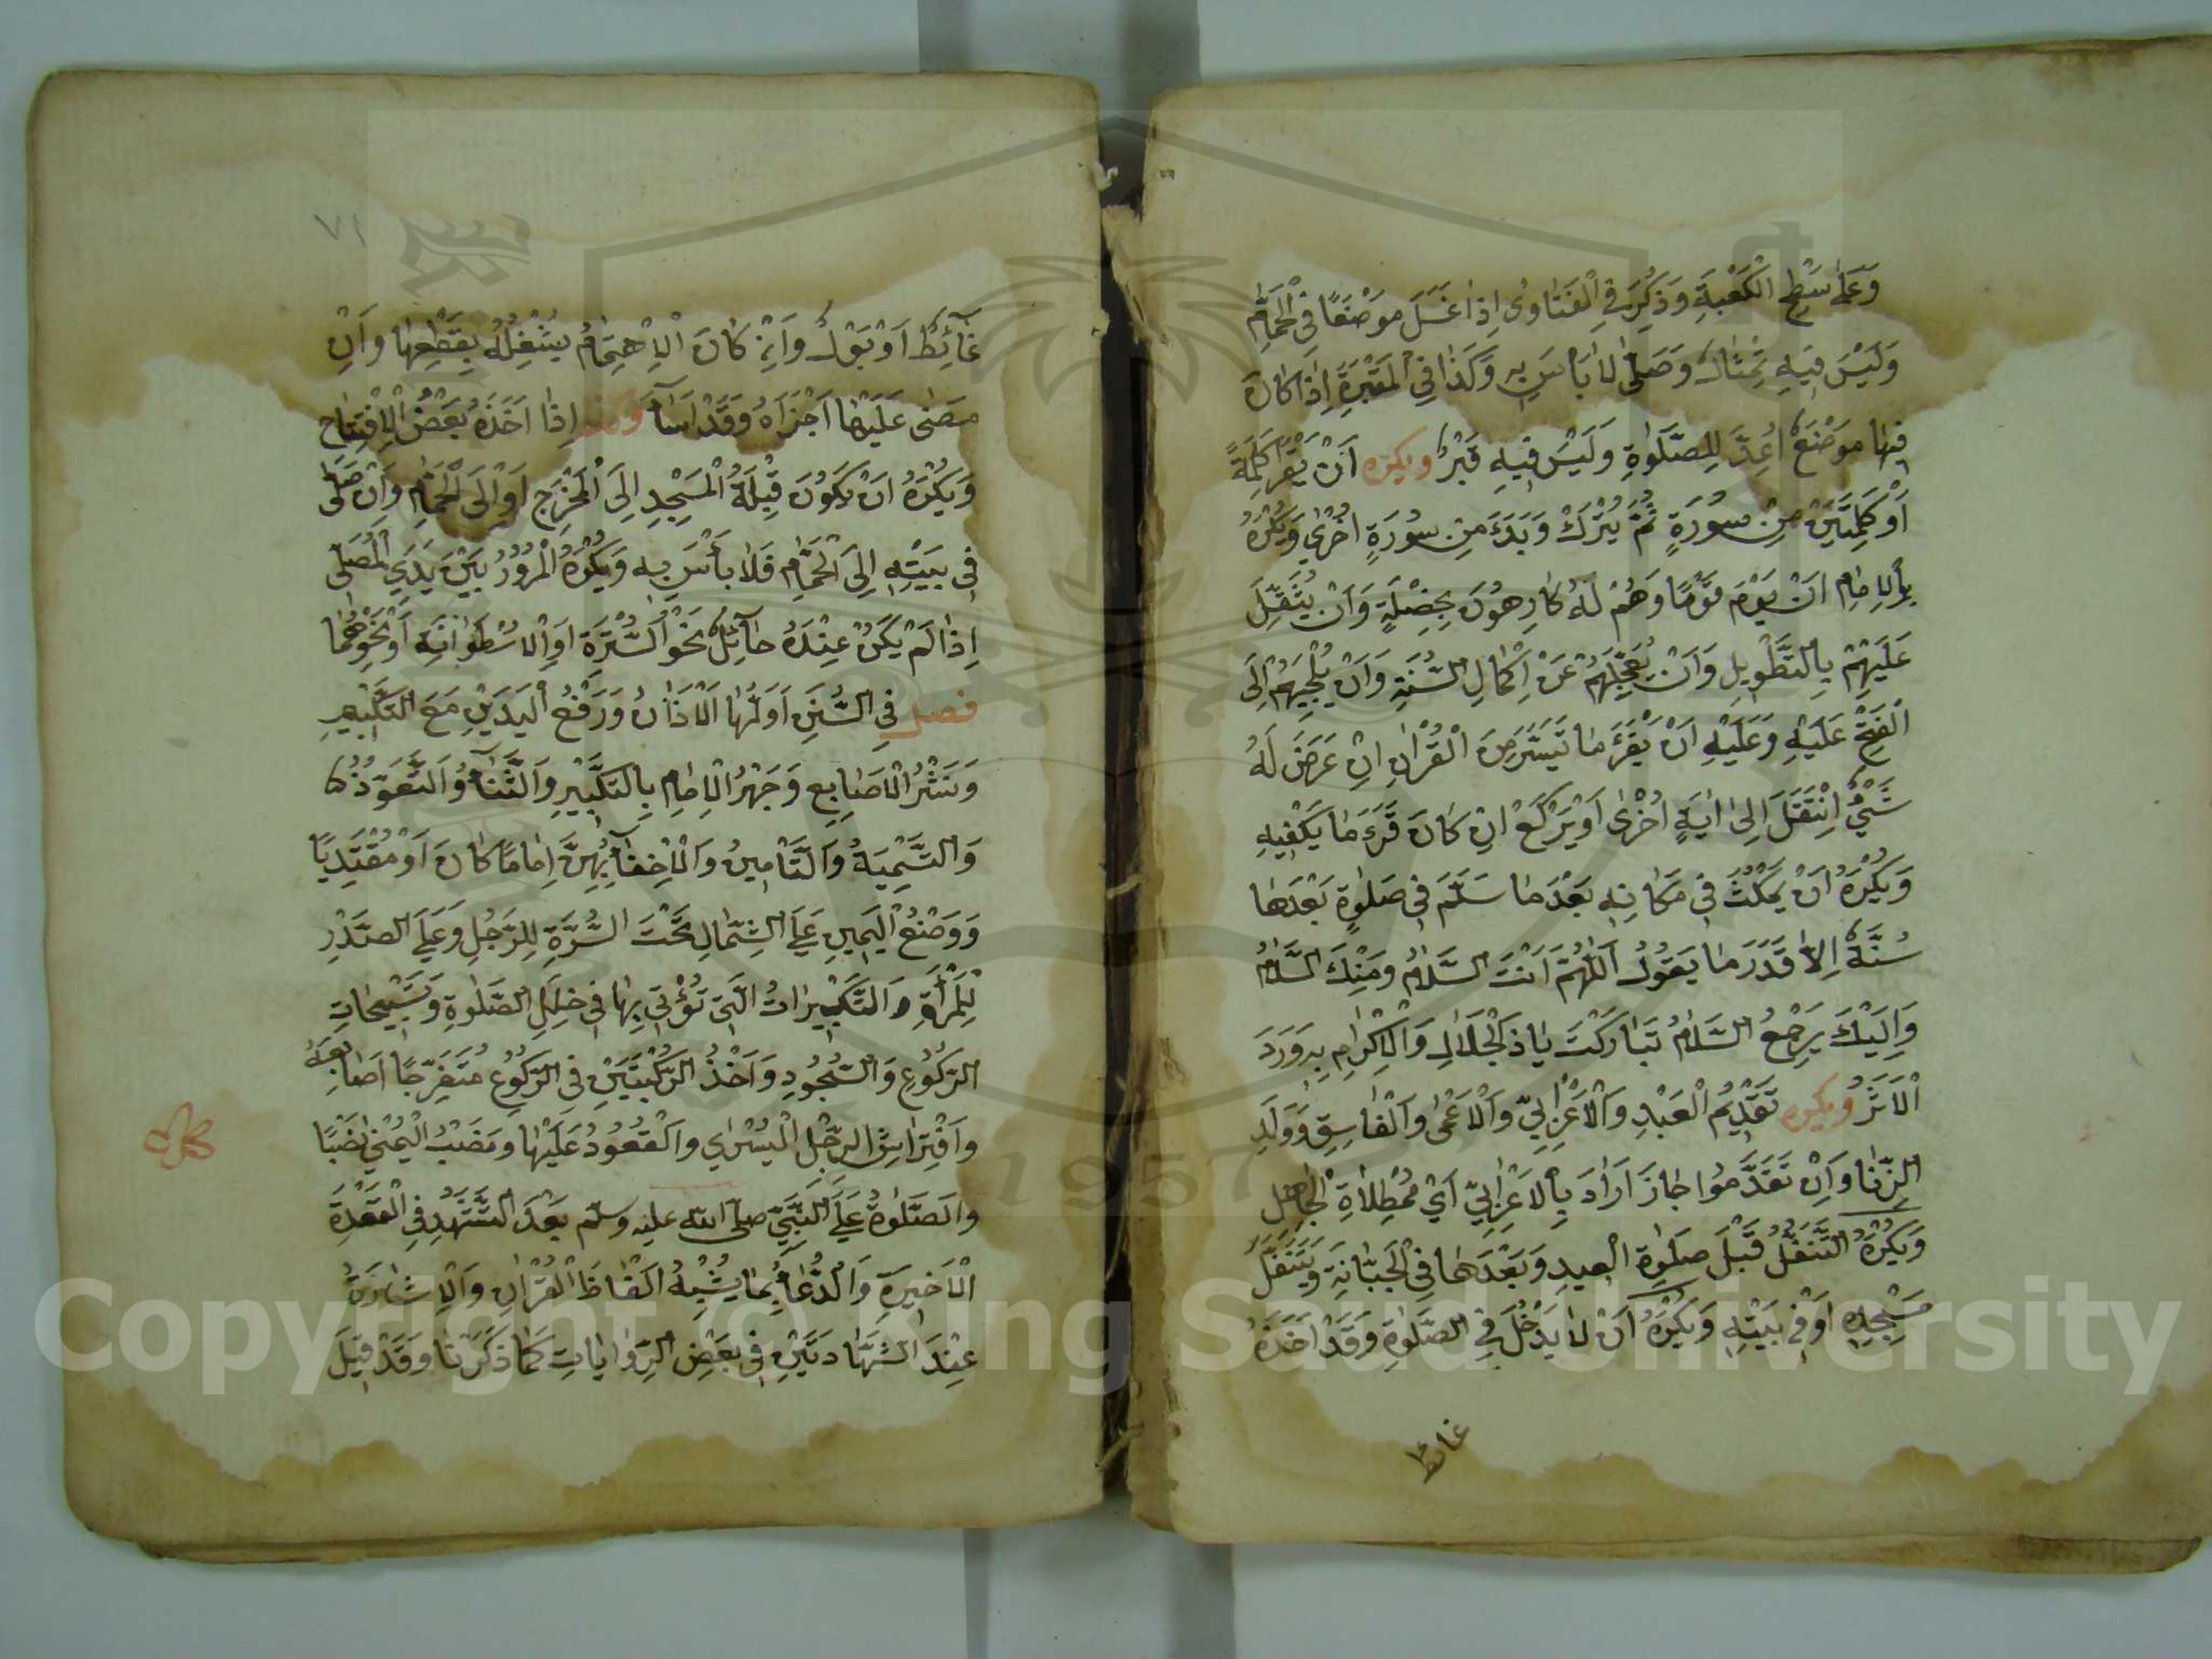 وَعَلَى سَطْحِ الْكَعْبَةِ وَذُكِرَ فِي الْفَتَاوٰى اِذَا غَسَلَ مَوْضِعًا فِي الْحَمَّامِ
وَلَيْسَ فِيهِ تِمْثَالٌ وَصَلّٰى لَا بَأْسَ بِهِ وَكَذَا فِي الْمَقْبَرَةِ اِذَا كَانَ
فِيهَا مَوْضِعٌ اُعِدَّ لِلصَّلٰوةِ وَلَيْسَ فِيهِ قَبْرٌ ويكره اَنْ يَقْرَأَ كَلِمَةً
اَوْ كَلِمَتَيْنِ مِنْ سُورَةٍ ثُمَّ يَتْرُكَ وَبَدَءَ مِنْ سُورَةٍ اُخْرٰى وَيُكْرَهُ
بِالْاِمَامِ اَنْ يَؤُمَّ قَوْمًا وَهُمْ لَهُ كَارِهُونَ بِخِصْلَةٍ وَاَنْ يُثَقِّلَ
عَلَيْهِمْ بِالتَّطْوِيلِ وَاَنْ يُعَجِّلَهُمْ عَنْ اِكْمَالِ السُّنَّةِ وَاَنْ يُلْجِيَهُمْ اِلَى
الْفَتْحِ عَلَيْهِ وَعَلَيْهِ اَنْ يَقْرَءَ مَا تَيَسَّرَ مِنَ الْقُرْاٰنِ اِنْ عَرَضَ لَهُ
شَيْءٌ اِنْتَقَلَ اِلٰى اٰيَةٍ اُخْرٰى اَوْ يَرْكَعُ اِنْ كَانَ قَرَءَ مَا يَكْفِيهِ
وَيُكْرَهُ اَنْ يَمْكُثَ فِي مَكَانِهِ بَعْدَ مَا سَلَّمَ فِي صَلٰوةٍ بَعْدَهَا
سُنَّةٌ اِلَّا قَدْرَ مَا يَقُولُ اَللّٰهُمَّ اَنْتَ السَّلَامُ وَمِنْكَ السَّلَامُ
وَاِلَيْكَ يَرْجِعُ السَّلَامُ تَبَارَكْتَ يَا ذَالْجَلَالِ وَالْاِكْرَامِ بِهِ وَرَدَ
الْاَثَرُ ويكره تَقْدِيمُ الْعَبْدِ وَالْاَعْرَابِيِّ وَالْاَعْمٰى وَالْفَاسِقِ وَوَلَدِ
الزِّنَا وَاِنْ تَقَدَّمُوا جَازَ اَرَادَ بِالْاَعْرَابِيِّ اَيْ الْجَاهِل
وَيُكْرَهُ التَّنَفُّلُ قَبْلَ صَلٰوةِ الْعِيدِ وَبَعْدَهَا فِي الْجَبَّانَةِ وَيَتَنَفَّلُ
مَسْجِدِهِ اَوْ فِي بَيْتِهِ وَيُكْرَهُ اَنْ لَا يَدْخُلَ فِي الصَّلٰوةِ وَقَدْ اَخَذَهُ
غائط
٧١
غَائِطٌ اَوْ بَوْلٌ وَاِنْ كَانَ الْاِهْتِمَامُ يَشْغَلُهُ يَقْطَعُهَا وَاِنْ
مَضٰى عَلَيْهَا اَجْزَاَهُ وَقَدْ اَسَاءَ وكذا اِذَا اَخَذَهُ بَعْضُ الْاِفْتِتَاحِ
وَيُكْرَهُ اَنْ يَكُونَ قِبْلَةُ الْمَسْجِدِ اِلَى الْمَخْرَجِ اَوْ اِلَى الْحَمَّامِ وَاِنْ صَلّٰى
فِي بَيْتِهِ اِلَى الْحَمَّامِ فَلَا بَأْسَ بِهِ وَيُكْرَهُ الْمُرُورُ بَيْنَ يَدَيِ الْمُصَلِّى
اِذَا لَمْ يَكُنْ عِنْدَهُ حَائِلٌ نَحْوَ السُّتْرَةِ اَوِ الْاُسْطُوَانَةِ اَوْ نَحْوِهِمَا
فصل فِي السُّنَنِ اَوَّلُهَا الْاَذَانُ وَرَفْعُ الْيَدَيْنِ مَعَ التَّكْبِيرِ
وَنَشْرُ الْاَصَابِعِ وَجَهْرُ الْاِمَامِ بِالتَّكْبِيرِ وَالثَّنَاءُ وَالتَّعَوُّذُ
وَالتَّسْمِيَةُ وَالتَّأْمِينُ وَالْاِخْفَاءُ بِهِنَّ اِمَامًا كَانَ اَوْ مُقْتَدِيًا
وَوَضْعُ الْيَمِينِ عَلَى الشِّمَالِ تَحْتَ السُّرَّةِ لِلرَّجُلِ وَعَلَى الصَّدْرِ
لِلْمَرْأَةِ وَالتَّكْبِيرَاتُ الَّتِي تُؤْتٰى بِهَا فِي خِلَلِ الصَّلٰوةِ وَتَسْبِيحَاتِ
الرُّكُوعِ وَالسُّجُودِ وَاَخْذُ الرُّكْبَتَيْنِ فِي الرُّكُوعِ مُتَفَرِّجًا اَصَابِعَهُ
وَافْتِرَاشُ الرِّجْلِ الْيُسْرٰى وَالْقُعُودُ عَلَيْهَا وَنَصْبُ الْيُمْنٰى نَصْبًا
وَالصَّلٰوةُ عَلَى النَّبِيِّ صلى الله عليه وسلم بَعْدَ التَّشَهُّدِ فِي الْقَعْدَةِ
الْاَخِيرَةِ وَالدُّعَاءُ بِمَا يُشْبِهُ اَلْفَاظَ الْقُرْاٰنِ وَالْاِشَارَةُ
عِنْدَ الشَّهَادَتَيْنِ فِي بَعْضِ الرِّوَايَاتِ كَمَا ذَكَرْنَا وَقَدْ قِيلَ
1957
Copyright © King Saud University